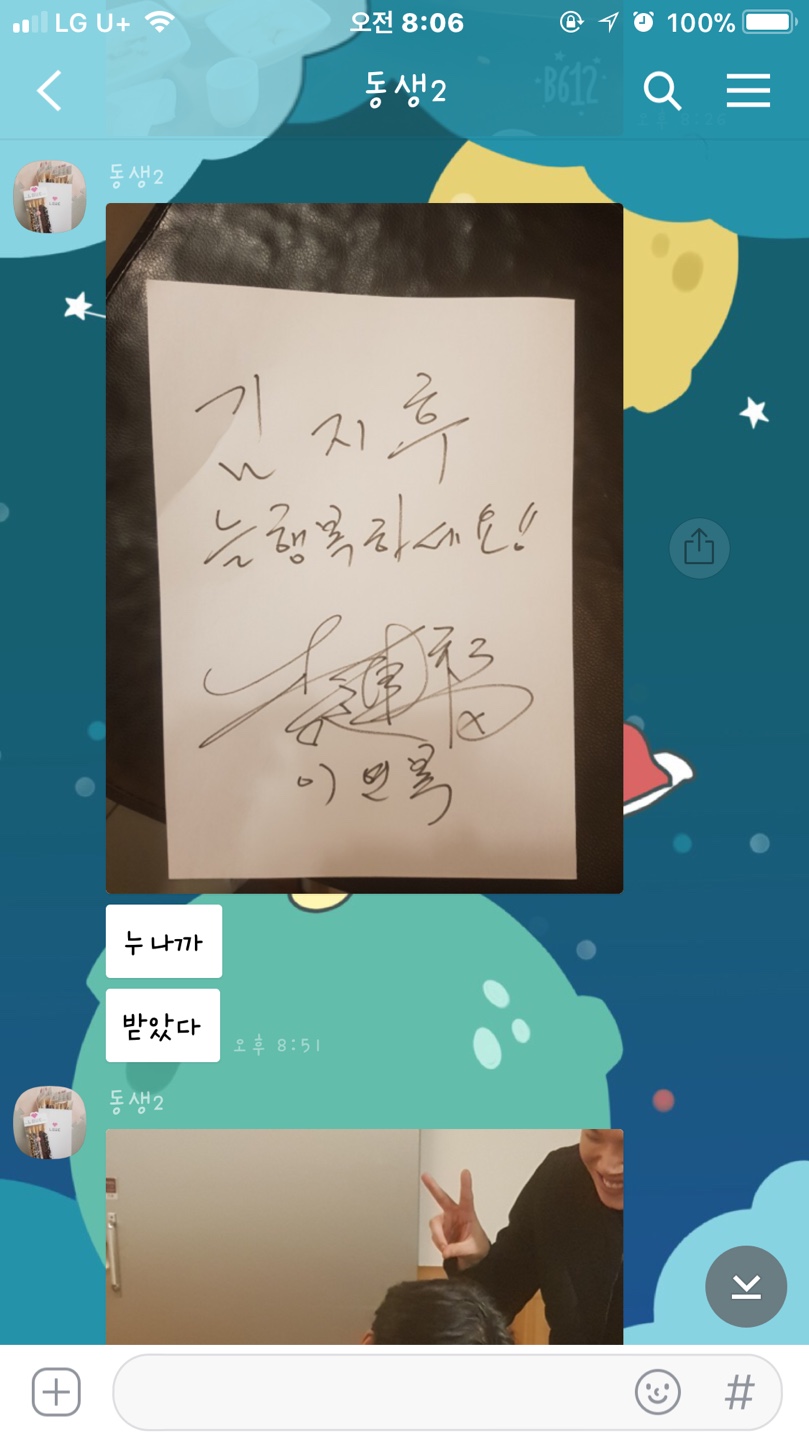 LG U+ 오전 8:06 100%
동생2
B612
오후 8:26
동생2
김지후
늘행복하세요!!
李連福
이연복
누나까
받았다
오후 8:51
동생2
#